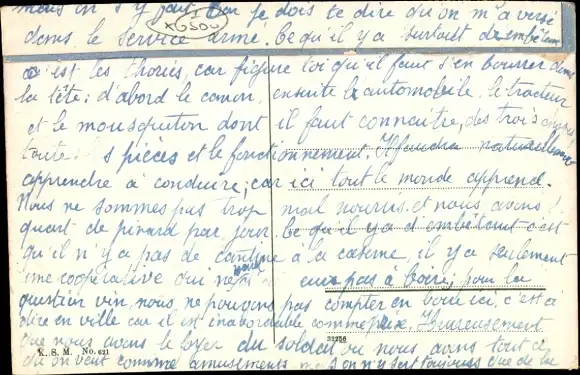 mais on s'y fait. Car je dois te dire qu'on m'a versé
dans le service armé. Ce qu'il y a surtout d'embêtant
c'est les théories, car figure toi qu'il faut s'en bourrer dans
la tête: d'abord le canon, ensuite l'automobile, le tracteur
et le mousqueton dont il faut connaître, des trois choses,
toutes les pièces et le fonctionnement. Il faudra naturellement
apprendre à conduire; car ici tout le monde apprend.
Nous ne sommes pas trop mal nourris et nous avons 1
quart de pinard par jour. Ce qu'il y a d'embêtant c'est
qu'il n'y a pas de cantine à la caserne, il y a seulement
une coopérative qui ne pas à boire; pour la
question vin, nous ne pouvons pas compter en boire ici, c'est à
dire en ville car il est inabordable comme prix. Heureusement
que nous avons le foyer du soldat où nous avons tout ce
qu'on veut comme amusements mais on n'y sert toujours que de la
K. S. M. No. 621
32256